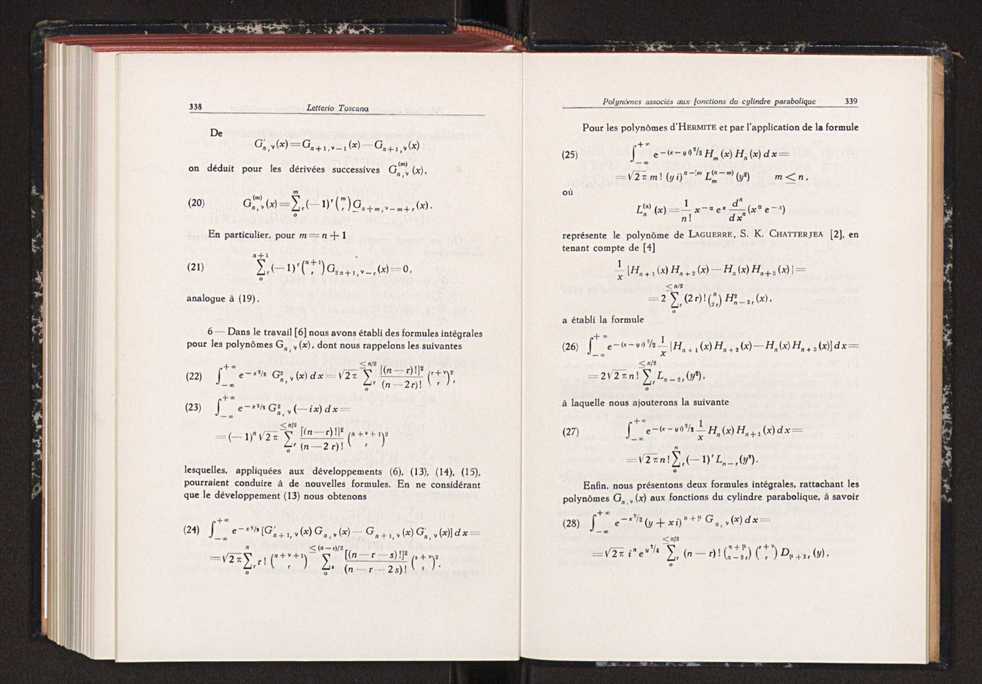 338 Letterio Toscano
De
G′ₙ,ᵥ(x) = Gₙ₊₁,ᵥ₋₁(x) − Gₙ₊₁,ᵥ(x)
on déduit pour les dérivées successives G⁽ᵐ⁾ₙ,ᵥ (x),
(20) G⁽ᵐ⁾ₙ,ᵥ(x) = Σᵣ₀ᵐ (−1)ʳ (m r) Gₙ₊ₘ,ᵥ₋ₘ₊ᵣ(x).
En particulier, pour m = n + 1
(21) Σᵣ₀ⁿ⁺¹ (−1)ʳ (n+1 r) G₂ₙ₊₁,ᵥ₋ᵣ(x) = 0,
analogue à (19).
6 — Dans le travail [6] nous avons établi des formules intégrales
pour les polynômes Gₙ,ᵥ(x), dont nous rappelons les suivantes
(22) ∫₋∞⁺∞ e^(−x²/2) G²ₙ,ᵥ(x) dx = √2π Σᵣ₀^(≤n/2) [(n−r)!]²/(n−2r)! (r+ν r)²,
(23) ∫₋∞⁺∞ e^(−x²/2) G²ₙ,ᵥ(−ix) dx =
= (−1)ⁿ √2π Σᵣ₀^(≤n/2) [(n−r)!]²/(n−2r)! (n+ν+1 r)²
lesquelles, appliquées aux développements (6), (13), (14), (15),
pourraient conduire à de nouvelles formules. En ne considérant
que le développement (13) nous obtenons
(24) ∫₋∞⁺∞ e^(−x²/2) [G′ₙ₊₁,ᵥ(x) Gₙ,ᵥ(x) − Gₙ₊₁,ᵥ(x) G′ₙ,ᵥ(x)] dx =
= √2π Σᵣ₀ⁿ r! (n+ν+1 r) Σₛ₀^(≤(n−r)/2) [(n−r−s)!]²/(n−r−2s)! (s+ν s)².
Polynômes associés aux fonctions du cylindre parabolique 339
Pour les polynômes d'HERMITE et par l'application de la formule
(25) ∫₋∞⁺∞ e^(−(x−y)²/2) Hₘ(x) Hₙ(x) dx =
= √2π m! (yi)ⁿ⁻ᵐ Lₘ⁽ⁿ⁻ᵐ⁾ (y²) m ≤ n,
où
Lₙ⁽ᵅ⁾ (x) = 1/n! x⁻ᵅ eˣ dⁿ/dxⁿ (xᵅ e⁻ˣ)
représente le polynôme de LAGUERRE, S. K. CHATTERJEA [2], en
tenant compte de [4]
1/x [Hₙ₊₁(x) Hₙ₊₂(x) − Hₙ(x) Hₙ₊₃(x)] =
= 2 Σᵣ₀^(≤n/2) (2r)! (n 2r) H²ₙ₋₂ᵣ(x),
a établi la formule
(26) ∫₋∞⁺∞ e^(−(x−yi)²/2) 1/x [Hₙ₊₁(x) Hₙ₊₂(x) − Hₙ(x) Hₙ₊₃(x)] dx =
= 2√2π n! Σᵣ₀^(≤n/2) Lₙ₋₂ᵣ(y²),
à laquelle nous ajouterons la suivante
(27) ∫₋∞⁺∞ e^(−(x−yi)²/2) 1/x Hₙ(x) Hₙ₊₁(x) dx =
= √2π n! Σᵣ₀ⁿ (−1)ʳ Lₙ₋ᵣ(y²).
Enfin, nous présentons deux formules intégrales, rattachant les
polynômes Gₙ,ᵥ(x) aux fonctions du cylindre parabolique, à savoir
(28) ∫₋∞⁺∞ e^(−x²/2) (y + xi)ⁿ⁺ᵘ Gₙ,ᵥ(x) dx =
= √2π iⁿ e^(y²/4) Σᵣ₀^(≤n/2) (n−r)! (n+μ n−2r) (r+ν r) D_(μ+2r) (y),